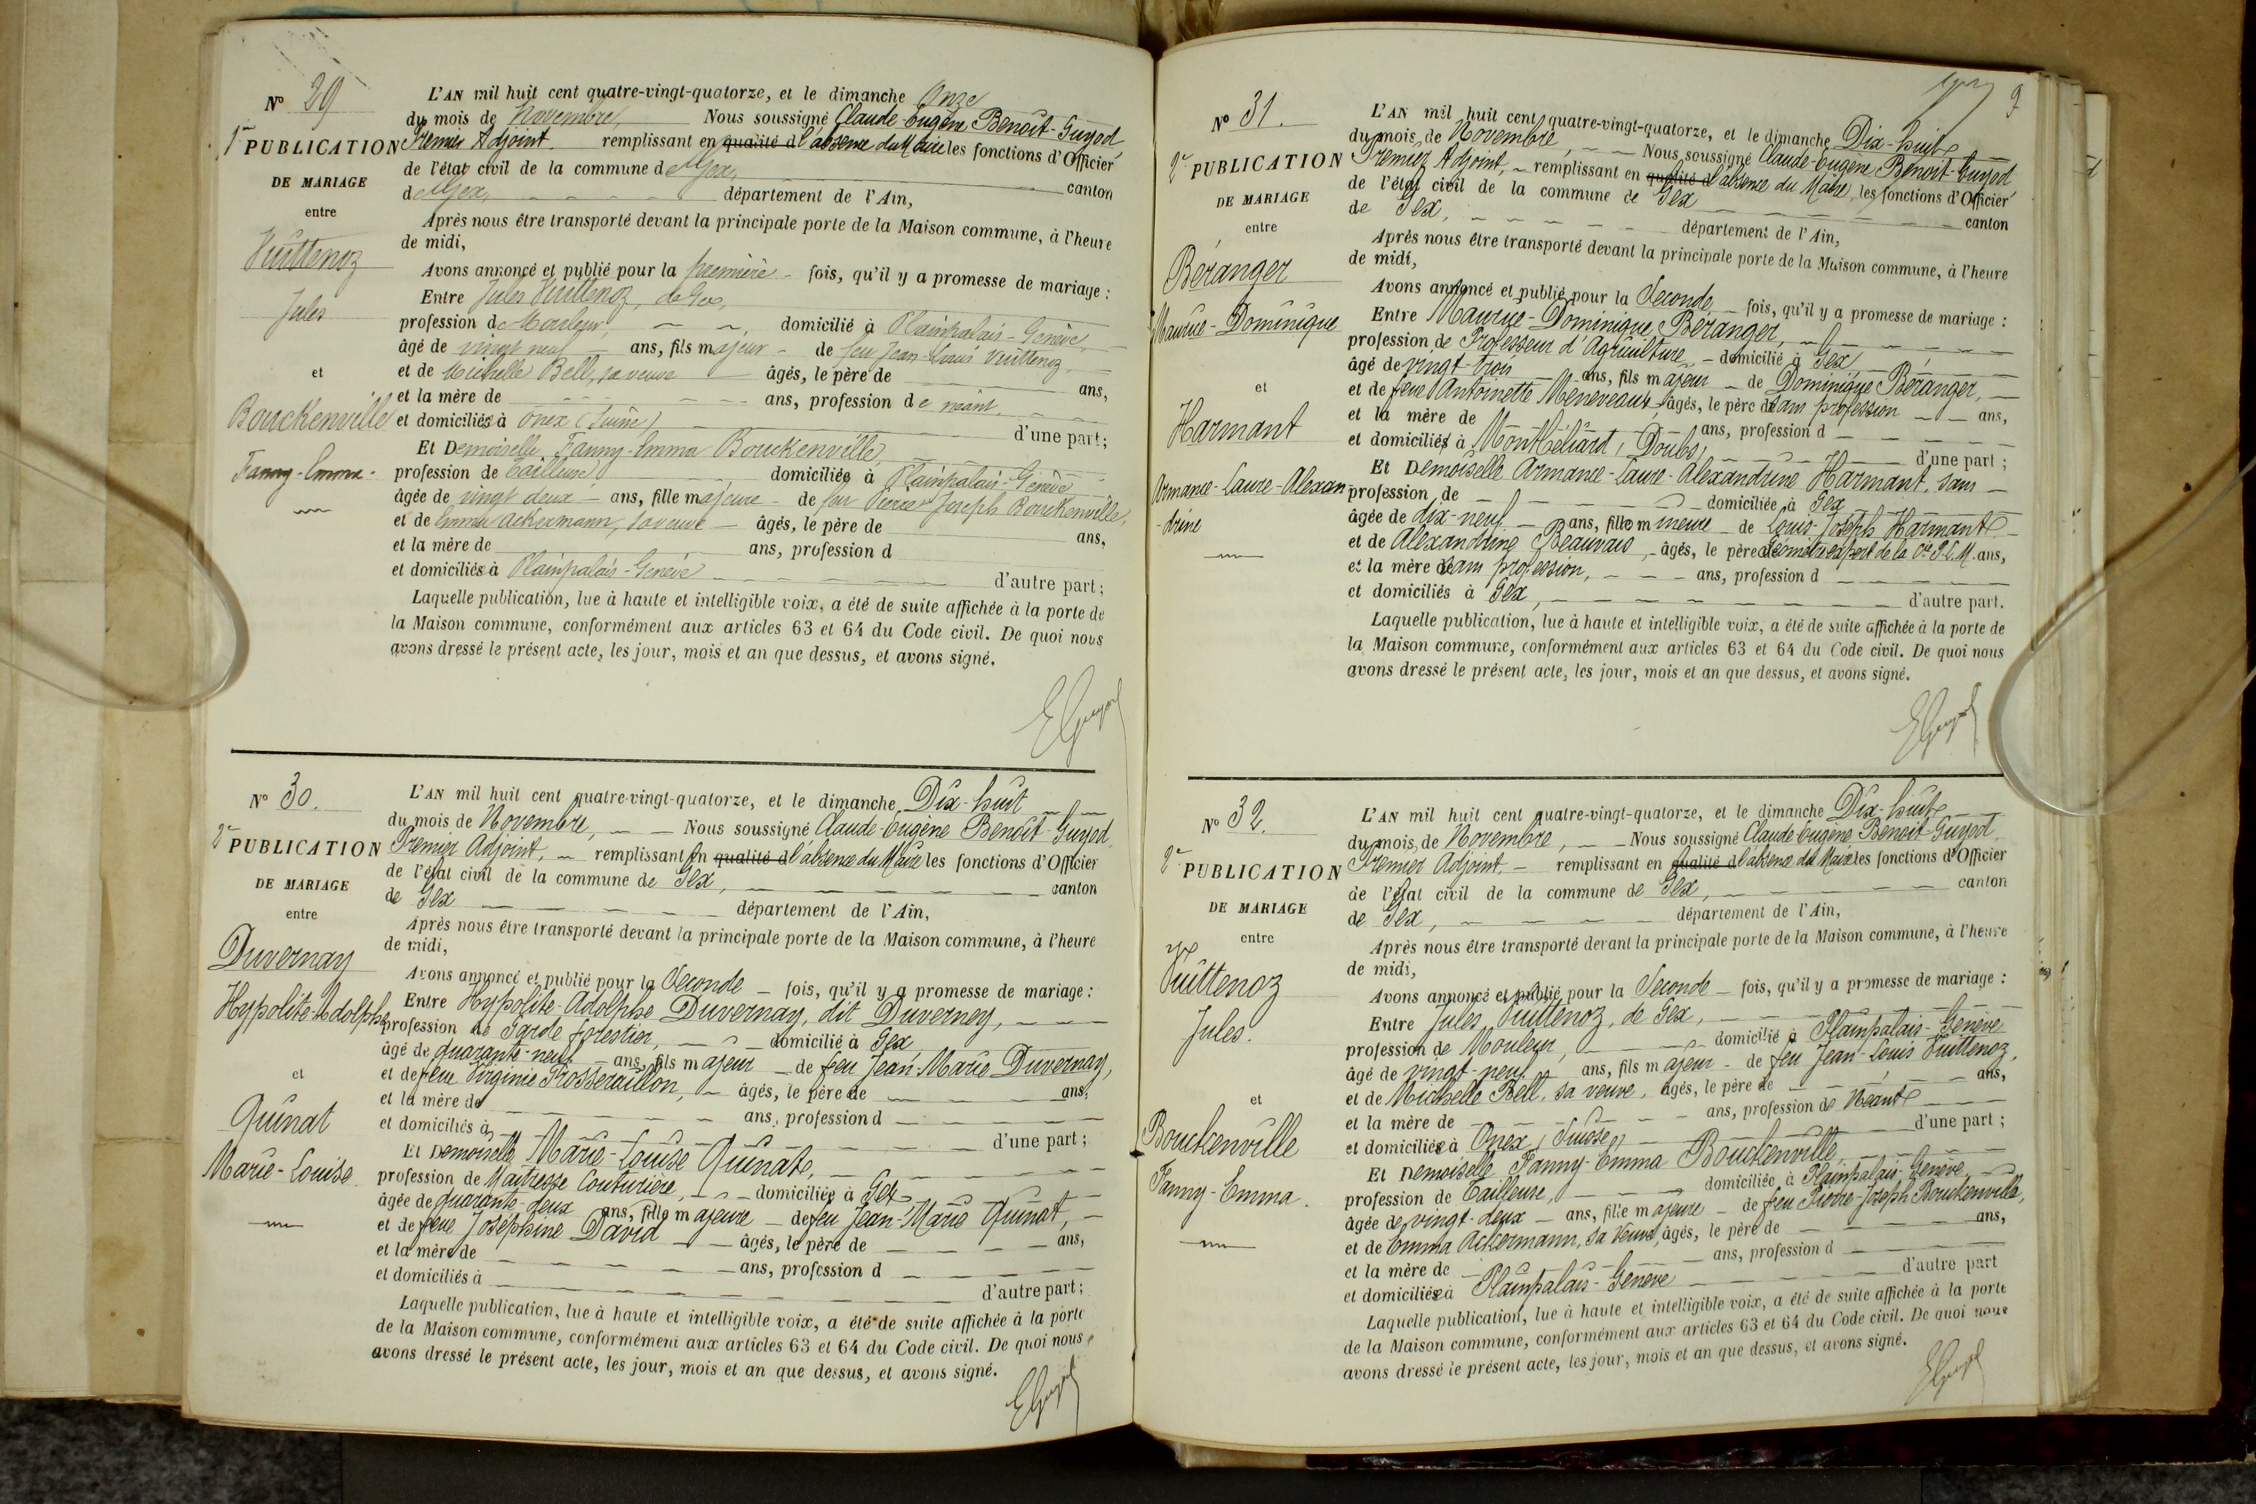 N° 29
1re PUBLICATION
DE MARIAGE
entre
Vuittenoz
Jules
et
Bouckenville
Fanny-Emma
L'AN mil huit cent quatre-vingt-quatorze, et le dimanche Onze
du mois de Novembre, Nous soussigné Claude-Eugène Benoit-Guyod,
Premier Adjoint. remplissant en qualité d l'absence du Maire les fonctions d'Officier
de l'état civil de la commune de Gex, canton
de Gex, département de l'Ain,
Après nous être transporté devant la principale porte de la Maison commune, à l'heure
de midi,
Avons annoncé et publié pour la première fois, qu'il y a promesse de mariage :
Entre Jules Vuittenoz, de Gex,
profession de Mouleur, domicilié à Plainpalais-Genève,
âgé de vingt neuf ans, fils majeur de feu Jean-Louis Vuittenoz,
et de Michelle Bell, sa veuve âgés, le père de ans,
et la mère de ans, profession de néant.
et domiciliés à Onex (Suisse) d'une part ;
Et Demoiselle Fanny-Emma Bouckenville
profession de Tailleuse domiciliée à Plainpalais-Genève
âgée de vingt deux ans, fille majeure de feu Pierre Joseph Bouckenville,
et de Emma Ackermann, sa veuve âgés, le père de ans,
et la mère de ans, profession d
et domiciliés à Plainpalais-Genève d'autre part ;
Laquelle publication, lue à haute et intelligible voix, a été de suite affichée à la porte de
la Maison commune, conformément aux articles 63 et 64 du Code civil. De quoi nous
avons dressé le présent acte, les jour, mois et an que dessus, et avons signé.
EGuyod
N° 30.
2e PUBLICATION
DE MARIAGE
entre
Duvernay
Hypolite-Adolphe
et
Quinat
Marie-Louise
L'AN mil huit cent quatre-vingt-quatorze, et le dimanche Dix-huit
du mois de Novembre, Nous soussigné Claude-Eugène Benoit-Guyod,
Premier Adjoint, remplissant en qualité d l'absence du Maire les fonctions d'Officier
de l'état civil de la commune de Gex, canton
de Gex département de l'Ain,
Après nous être transporté devant la principale porte de la Maison commune, à l'heure
de midi,
Avons annoncé et publié pour la Seconde fois, qu'il y a promesse de mariage :
Entre Hypolite-Adolphe Duvernay, dit Duverney,
profession de Garde forestier, domicilié à Gex
âgé de quarante-neuf ans, fils majeur de feu Jean-Marie Duvernay,
et de feue Virginie Frosseraillon, âgés, le père de ans,
et la mère de ans, profession d
et domiciliés à d'une part ;
Et Demoiselle Marie-Louise Quinat,
profession de Maitresse Couturière, domiciliée à Gex
âgée de quarante-deux ans, fille majeure de feu Jean-Marie Quinat,
et de feue Joséphine David âgés, le père de ans,
et la mère de ans, profession d
et domiciliés à d'autre part ;
Laquelle publication, lue à haute et intelligible voix, a été de suite affichée à la porte
de la Maison commune, conformément aux articles 63 et 64 du Code civil. De quoi nous
avons dressé le présent acte, les jour, mois et an que dessus, et avons signé.
EGuyod
9
N° 31.
2e PUBLICATION
DE MARIAGE
entre
Béranger
Maurice-Dominique
et
Harmant
Armance-Laure-Alexan
-drine
L'AN mil huit cent quatre-vingt-quatorze, et le dimanche Dix-huit
du mois de Novembre, Nous soussigné Claude-Eugène Benoit-Guyod,
Premier Adjoint, remplissant en qualité d l'absence du Maire, les fonctions d'Officier
de l'état civil de la commune de Gex canton
de Gex, département de l'Ain,
Après nous être transporté devant la principale porte de la Maison commune, à l'heure
de midi,
Avons annoncé et publié pour la Seconde fois, qu'il y a promesse de mariage :
Entre Maurice-Dominique Béranger,
profession de Professeur d'Agriculture, domicilié à Gex,
âgé de vingt-trois ans, fils majeur de Dominique Béranger,
et de feue Antoinette Meneveaux, âgés, le père de sans profession ans,
et la mère de ans, profession d
et domiciliés à Montbéliard, Doubs, d'une part ;
Et Demoiselle Armance-Laure-Alexandrine Harmant, sans
profession de domiciliée à Gex
âgée de dix-neuf ans, fille mineure de Louis-Joseph Harmant
et de Alexandrine Beauvais, âgés, le père de Géomètre expert de la Cie P.L.M. ans,
et la mère de sans profession, ans, profession d
et domiciliés à Gex, d'autre part.
Laquelle publication, lue à haute et intelligible voix, a été de suite affichée à la porte de
la Maison commune, conformément aux articles 63 et 64 du Code civil. De quoi nous
avons dressé le présent acte, les jour, mois et an que dessus, et avons signé.
EGuyod
N° 32.
2e PUBLICATION
DE MARIAGE
entre
Vuittenoz
Jules.
et
Bouckenville
Fanny-Emma.
L'AN mil huit cent quatre-vingt-quatorze, et le dimanche Dix-huit
du mois de Novembre, Nous soussigné Claude-Eugène Benoit-Guyod
Premier Adjoint. remplissant en qualité d l'absence du Maire les fonctions d'Officier
de l'état civil de la commune de Gex, canton
de Gex, département de l'Ain,
Après nous être transporté devant la principale porte de la Maison commune, à l'heure
de midi,
Avons annoncé et publié pour la Seconde fois, qu'il y a promesse de mariage :
Entre Jules Vuittenoz, de Gex,
profession de Mouleur, domicilié à Plainpalais-Genève
âgé de vingt-neuf ans, fils majeur de feu Jean-Louis Vuittenoz,
et de Michelle Bell, sa veuve, âgés, le père de ans,
et la mère de ans, profession de Néant
et domiciliés à Onex, Suisse, d'une part ;
Et Demoiselle Fanny-Emma Bouckenville,
profession de Tailleuse, domiciliée à Plainpalais-Genève,
âgée de vingt-deux ans, fille majeure de feu Pierre-Joseph Bouckenville,
et de Emma Ackermann, sa veuve, âgés, le père de ans,
et la mère de ans, profession d
et domiciliés à Plainpalais-Genève d'autre part
Laquelle publication, lue à haute et intelligible voix, a été de suite affichée à la porte
de la Maison commune, conformément aux articles 63 et 64 du Code civil. De quoi nous
avons dressé le présent acte, les jour, mois et an que dessus, et avons signé.
EGuyod